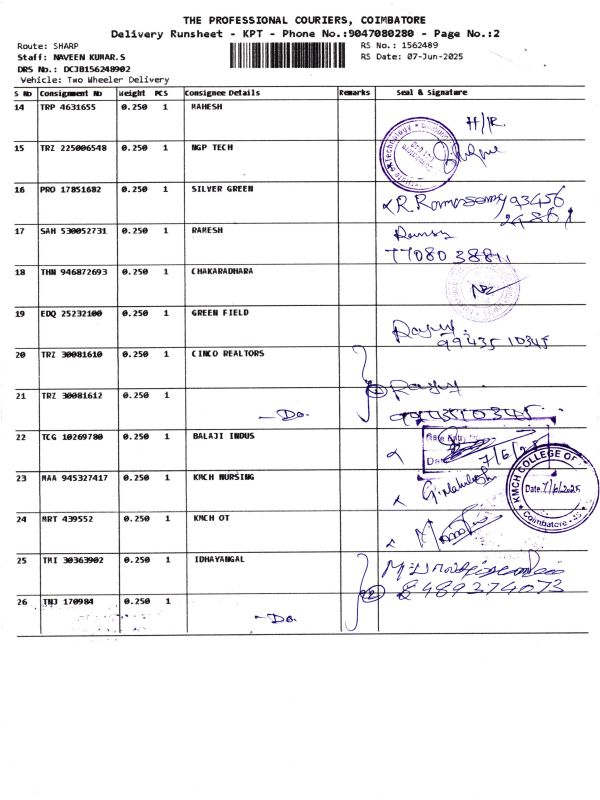 THE PROFESSIONAL COURIERS, COIMBATORE
Delivery Runsheet - KPT - Phone No.:9047080280 - Page No.:2
Route: SHARP
RS No.: 1562489
Staff: NAVEEN KUMAR.S
RS Date: 07-Jun-2025
DRS No.: DCJB156248902
Vehicle: Two Wheeler Delivery
S No Consignment No Weight PCS Consignee Details Remarks Seal & Signature
14 TRP 4631655 0.250 1 MAHESH
H/R.
15 TRZ 225006548 0.250 1 NGP TECH
16 PRO 17851682 0.250 1 SILVER GREEN
R. Ramasamy 93456
17 SAH 530052731 0.250 1 RAMESH
18 THN 946872693 0.250 1 CHAKARADHARA
19 EDQ 25232100 0.250 1 GREEN FIELD
99435 10345
20 TRZ 30081610 0.250 1 CINCO REALTORS
21 TRZ 30081612 0.250 1 -Do.
9943510345
22 TCG 10269780 0.250 1 BALAJI INDUS
7/6/25
23 MAA 945327417 0.250 1 KMCH NURSING
KMCH COLLEGE OF
Date 7/6/2025
Coimbatore
24 MRT 439552 0.250 1 KMCH OT
25 TMI 30363902 0.250 1 IDHAYANGAL
8489274073
26 TNJ 170984 0.250 1 -Do.